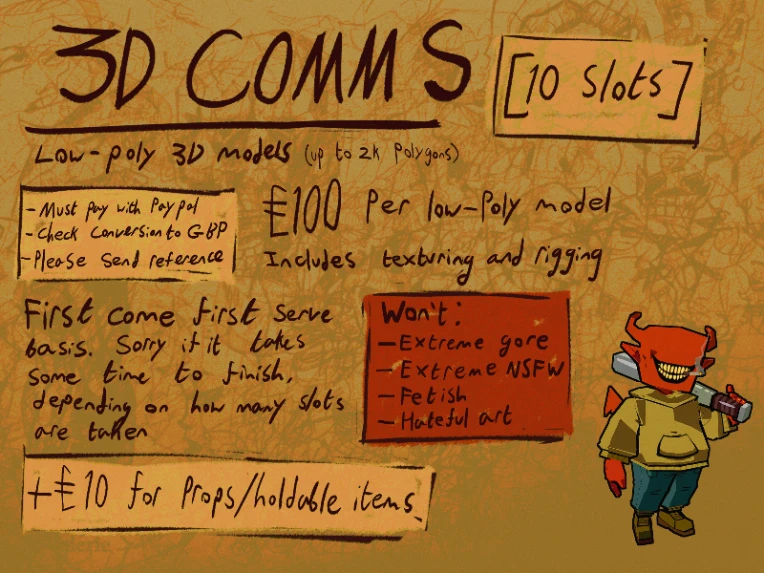 3D COMMS
[10 slots]
Low-poly 3D models (up to 2k polygons)
- Must pay with Paypal
- Check conversion to GBP
- Please send reference
£100 Per low-poly model
Includes texturing and rigging
First come first serve
basis. Sorry if it takes
some time to finish,
depending on how many slots
are taken
Won't:
- Extreme gore
- Extreme NSFW
- Fetish
- Hateful art
+£10 for Props/holdable items